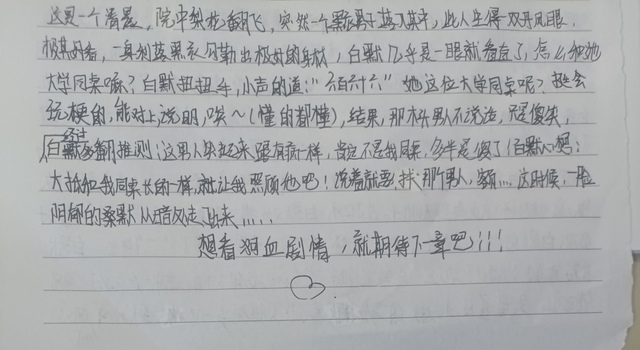 这是一个清晨,院中梨花翻飞,突然一个黑影落入其中,此人生得一双丹凤眼,
极其好看,一身利落黑衣勾勒出极好的身材,白默几乎是一眼就看直了,怎么和她
大学同桌嘛?白默扭扭手,小声的道:"六百六十六"她这位大学同桌呢?挺会
玩梗的,能对上说明,唉~(懂的都懂),结果,那木头男人不说话,只是傻笑,
白默经过多翻推测:这男人笑起来跟有病一样,肯定不是我同桌,多半是傻了(白默心想:
大抵和我同桌长的一样,就让我照顾他吧!说着就要找那个男人,额……这时候,一脸
阴郁的桑默从暗处走出来……
想看狗血剧情,就期待下一章吧!!!